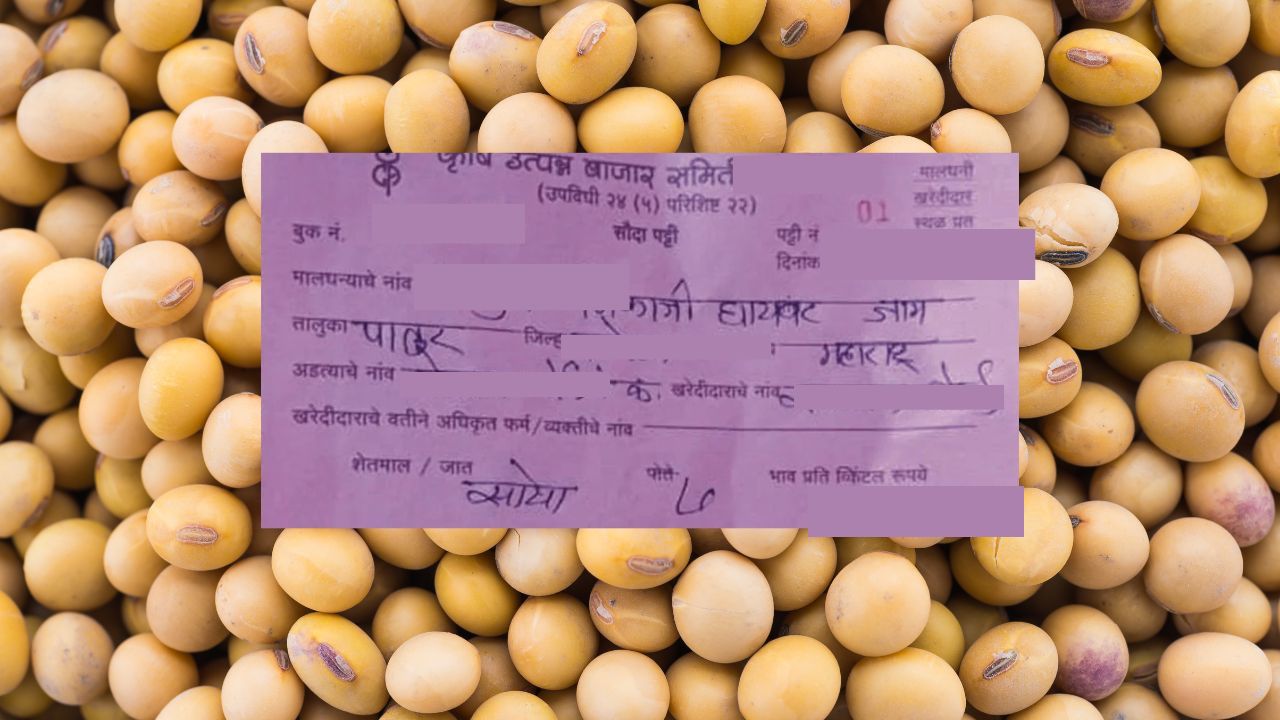 कृषि उत्पन्न बाजार समिती
(उपविधी २४ (५) परिशिष्ट २२)
मालधनी
खरेदीदार
स्थळ प्रत
01
बुक नं.
सौदा पट्टी
पट्टी नं
दिनांक
मालधन्याचे नांव
तालुका पातूर जिल्हा महाराष्ट्र
अडत्याचे नांव खरेदीदाराचे नांव
खरेदीदाराचे वतीने अधिकृत फर्म/व्यक्तीचे नांव
शेतमाल / जात सोया पोते ७ भाव प्रति क्विंटल रूपये